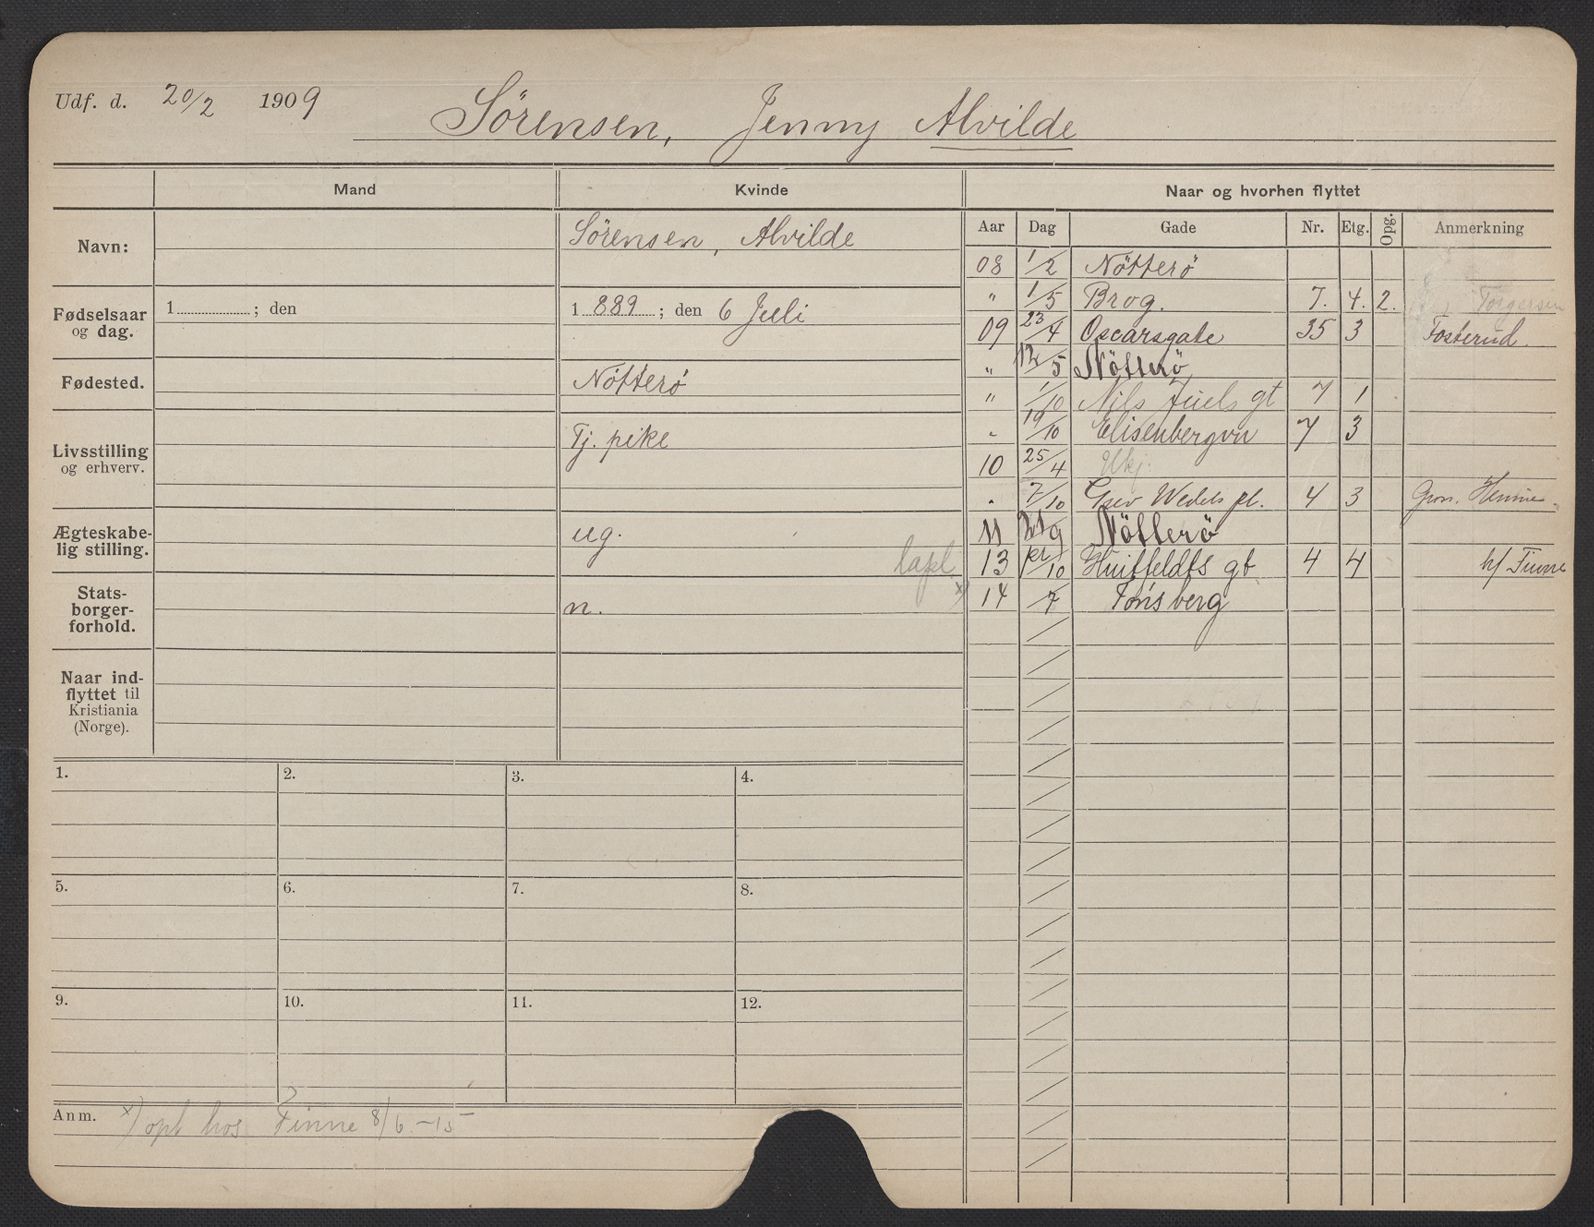 Udf. d. 20/2 1909 Sörensen, Jenny Alvilde
Mand Kvinde Naar og hvorhen flyttet
Navn: Sörensen, Alvilde
Fødselsaar og dag. 1 ; den 1 889 ; den 6 Juli
Fødested. Nötterö
Livsstilling og erhverv. Tj. pike
Ægteskabe-
lig stilling. ug.
Stats-
borger-
forhold. n.
Naar ind-
flyttet til
Kristiania
(Norge).
Aar Dag Gade Nr. Etg. Opg. Anmerkning
08 1/2 Nötterö
" 1/5 Brog. 7. 4. 2. Torgersen
09 23/4 Oscarsgate 35 3 Fosterud.
" 12/5 Nötterö
" 1/10 Nils Juels gt 7 1
" 19/10 Elisenbergvn 7 3
10 25/4 Ukj.
" 7/10 Grev Wedels pl. 4 3
11 21/9 Nötterö
lapl. 13 /10 Huitfeldts gt 4 4 h/ Finne
x) 14 /7 Tönsberg
1. 2. 3. 4.
5. 6. 7. 8.
9. 10. 11. 12.
Anm. x) opt hos Finne 8/6.-15